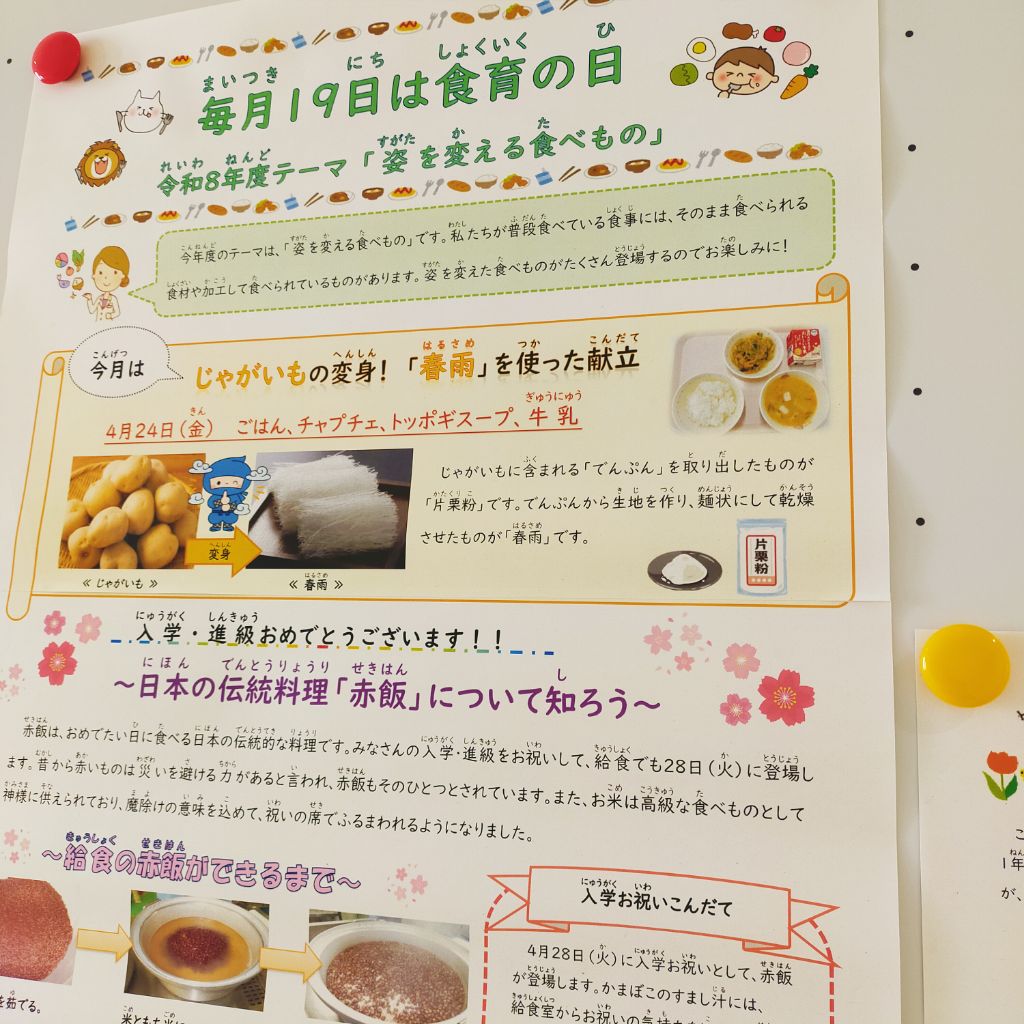 毎月19日は食育の日
令和8年度テーマ「姿を変える食べもの」
今年度のテーマは、「姿を変える食べもの」です。私たちが普段食べている食事には、そのまま食べられる
食材や加工して食べられているものがあります。姿を変えた食べものがたくさん登場するのでお楽しみに!
今月は
じゃがいもの変身!「春雨」を使った献立
4月24日(金) ごはん、チャプチェ、トッポギスープ、牛乳
じゃがいもに含まれる「でんぷん」を取り出したものが
「片栗粉」です。でんぷんから生地を作り、麺状にして乾燥
させたものが「春雨」です。
変身
片栗粉
≪じゃがいも≫
≪春雨≫
入学・進級おめでとうございます!!
~日本の伝統料理「赤飯」について知ろう~
赤飯は、おめでたい日に食べる日本の伝統的な料理です。みなさんの入学・進級をお祝いして、給食でも28日(火)に登場し
ます。昔から赤いものは災いを避ける力があると言われ、赤飯もそのひとつとされています。また、お米は高級な食べものとして
神様に供えられており、魔除けの意味を込めて、祝いの席でふるまわれるようになりました。
~給食の赤飯ができるまで~
を茹でる。
入学お祝いこんだて
4月28日(火)に入学お祝いとして、赤飯
が登場します。かまぼこのすまし汁には、
給食室からお祝いの気持ち
1年
が、